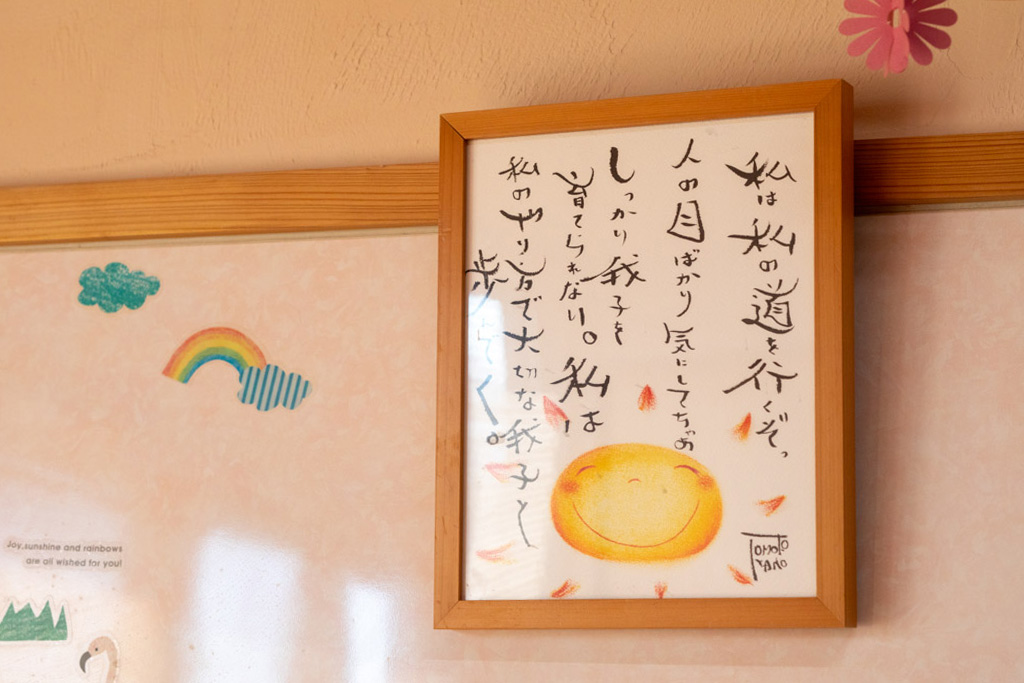 私は私の道を行くぞっ
人の目ばかり気にしてちゃぁ
しっかり我子を
育てられない。私は
私のやり方で大切な我子と
歩んでく。
Joy,sunshine and rainbows
are all wished for you!